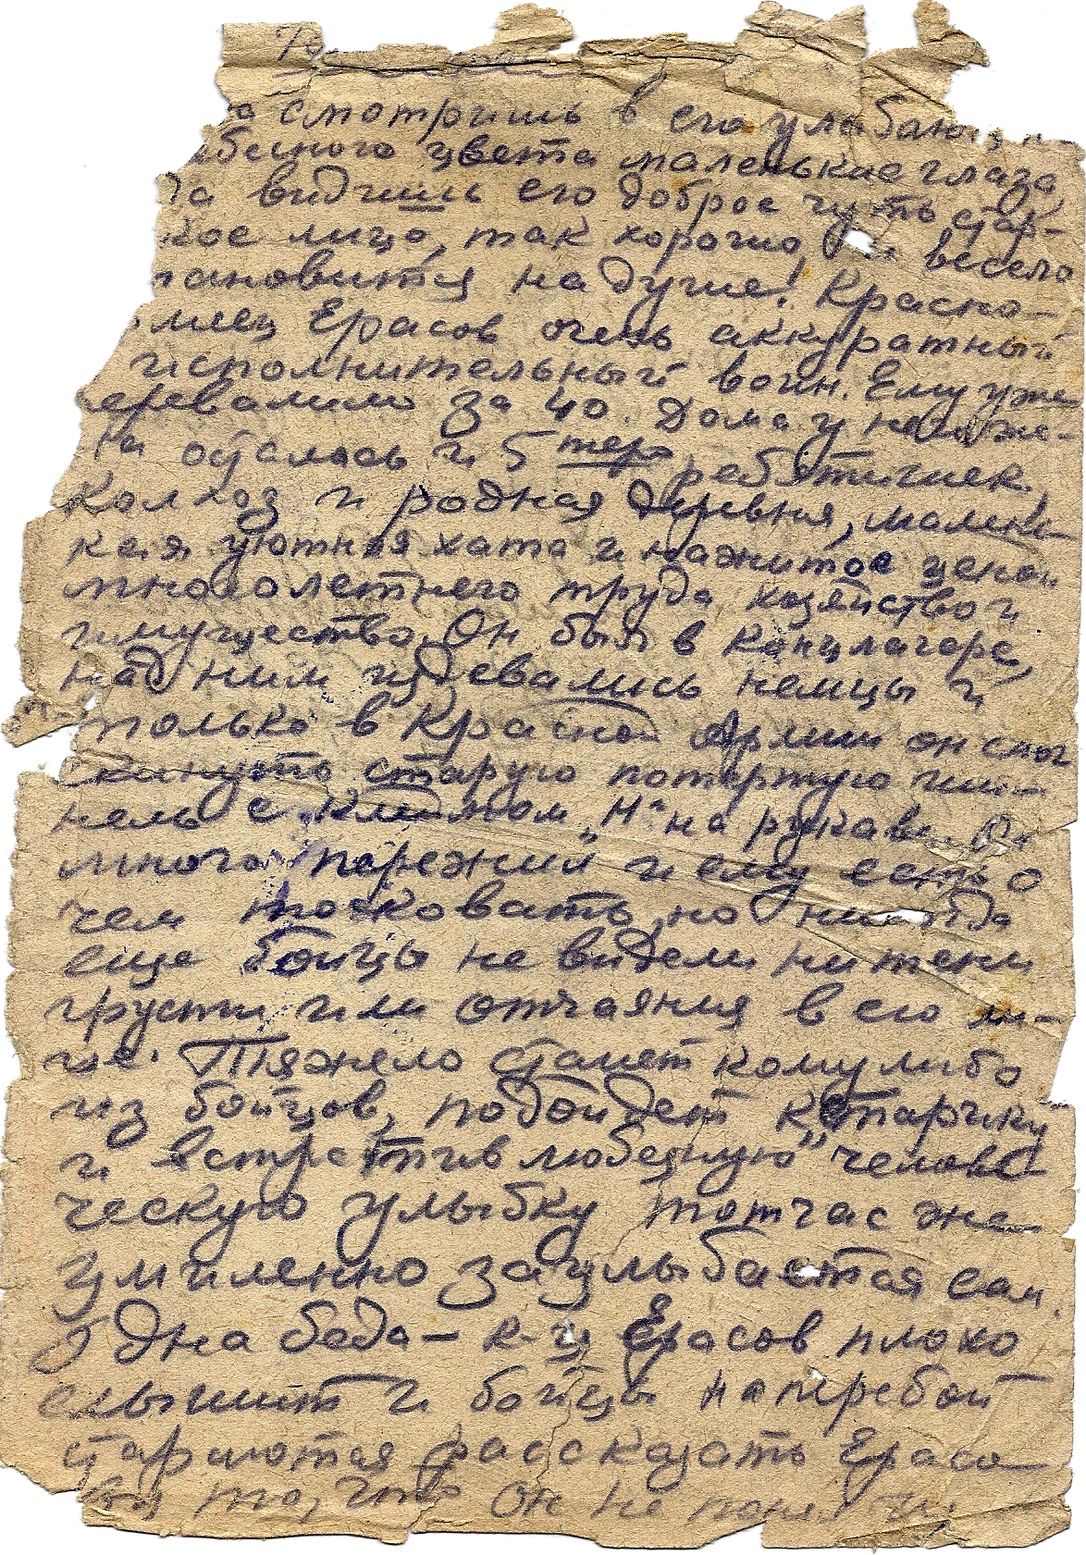 смотришь в его улыбающи
бесного цвета маленькие глаза,
да видишь его доброе чуть стар-
кое лицо, так хорошо, и весело
тановится на душе! Красно-
мец Ерасов очень аккуратный
исполнительный воин. Ему уже
перевалило за 40. Дома у него же-
на осталась и 5теро ребятишек,
колхоз и родная деревня, малень-
кая уютная хата и нажитое ценой
многолетнего труда хозяйство и
имущество. Он был в концлагере,
над ним издевались немцы и
только в Красной Армии он смог
скинуть старую потертую ши-
нель с клеймом „Н" на рукаве. Он
много пережил и ему есть о
чем тосковать, но никогда
еще бойцы не видели ни тени
грусти или отчаяния в его ли-
це. Тяжело станет кому либо
из бойцов, подойдет к старику
и встретив любезную, челове-
ческую улыбку тотчас же
умиленно заулыбается сам.
Одна беда – к-ц Ерасов плохо
слышит и бойцы наперебой
стараются рассказать Ерасо-
ву то, что он не понял